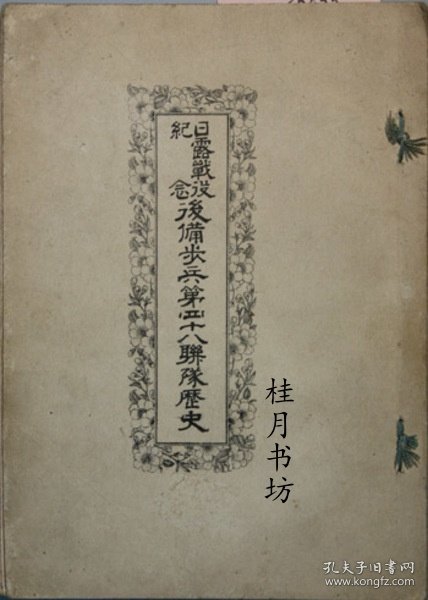 日露戰役
紀念
後備歩兵第四十八聯隊歴史
桂月书坊
孔夫子旧书网
www.kongfz.com